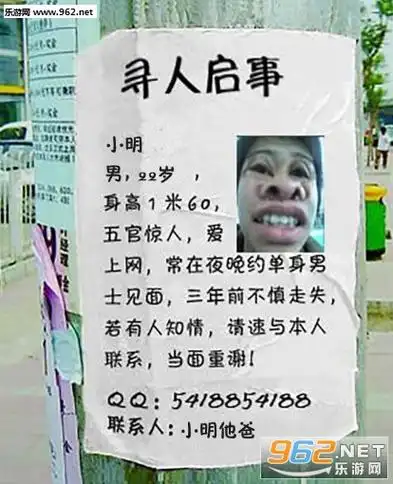 乐游网 www.962.net
寻人启事
小明
男，22岁 ，
身高1米60，
五官惊人，爱
上网，常在夜晚约单身男
士见面，三年前不慎走失，
若有人知情，请速与本人
联系，当面重谢！
QQ：5418854188
联系人：小明他爸
962.NET
乐游网